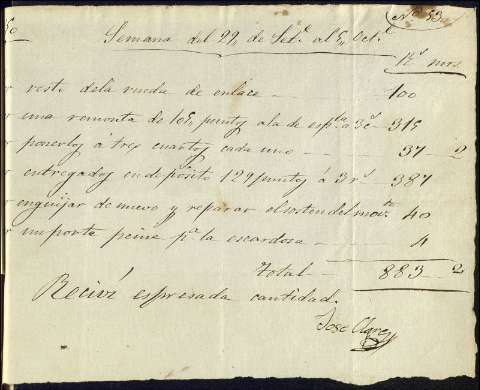 Nº 53
Semana del 29, de Setᵉ al 5, Octᵉ
Rˢ mrs
r resto dela rueda de enlace — 100
r una remonta de 105, puntos ala de espᵗᵃ a 3rˢ — 315
r ponerlos á tres cuartos cada uno — 37 — 2
r entregados en deposito 129 puntos á 3 rˢ 387
r enguijar de nuevo y reparar el sosten del movᵗᵒ. 40
r importe peine pᵃ la escardosa — 4
Total — 883 — 2
Recivi espresada cantidad.
Jose